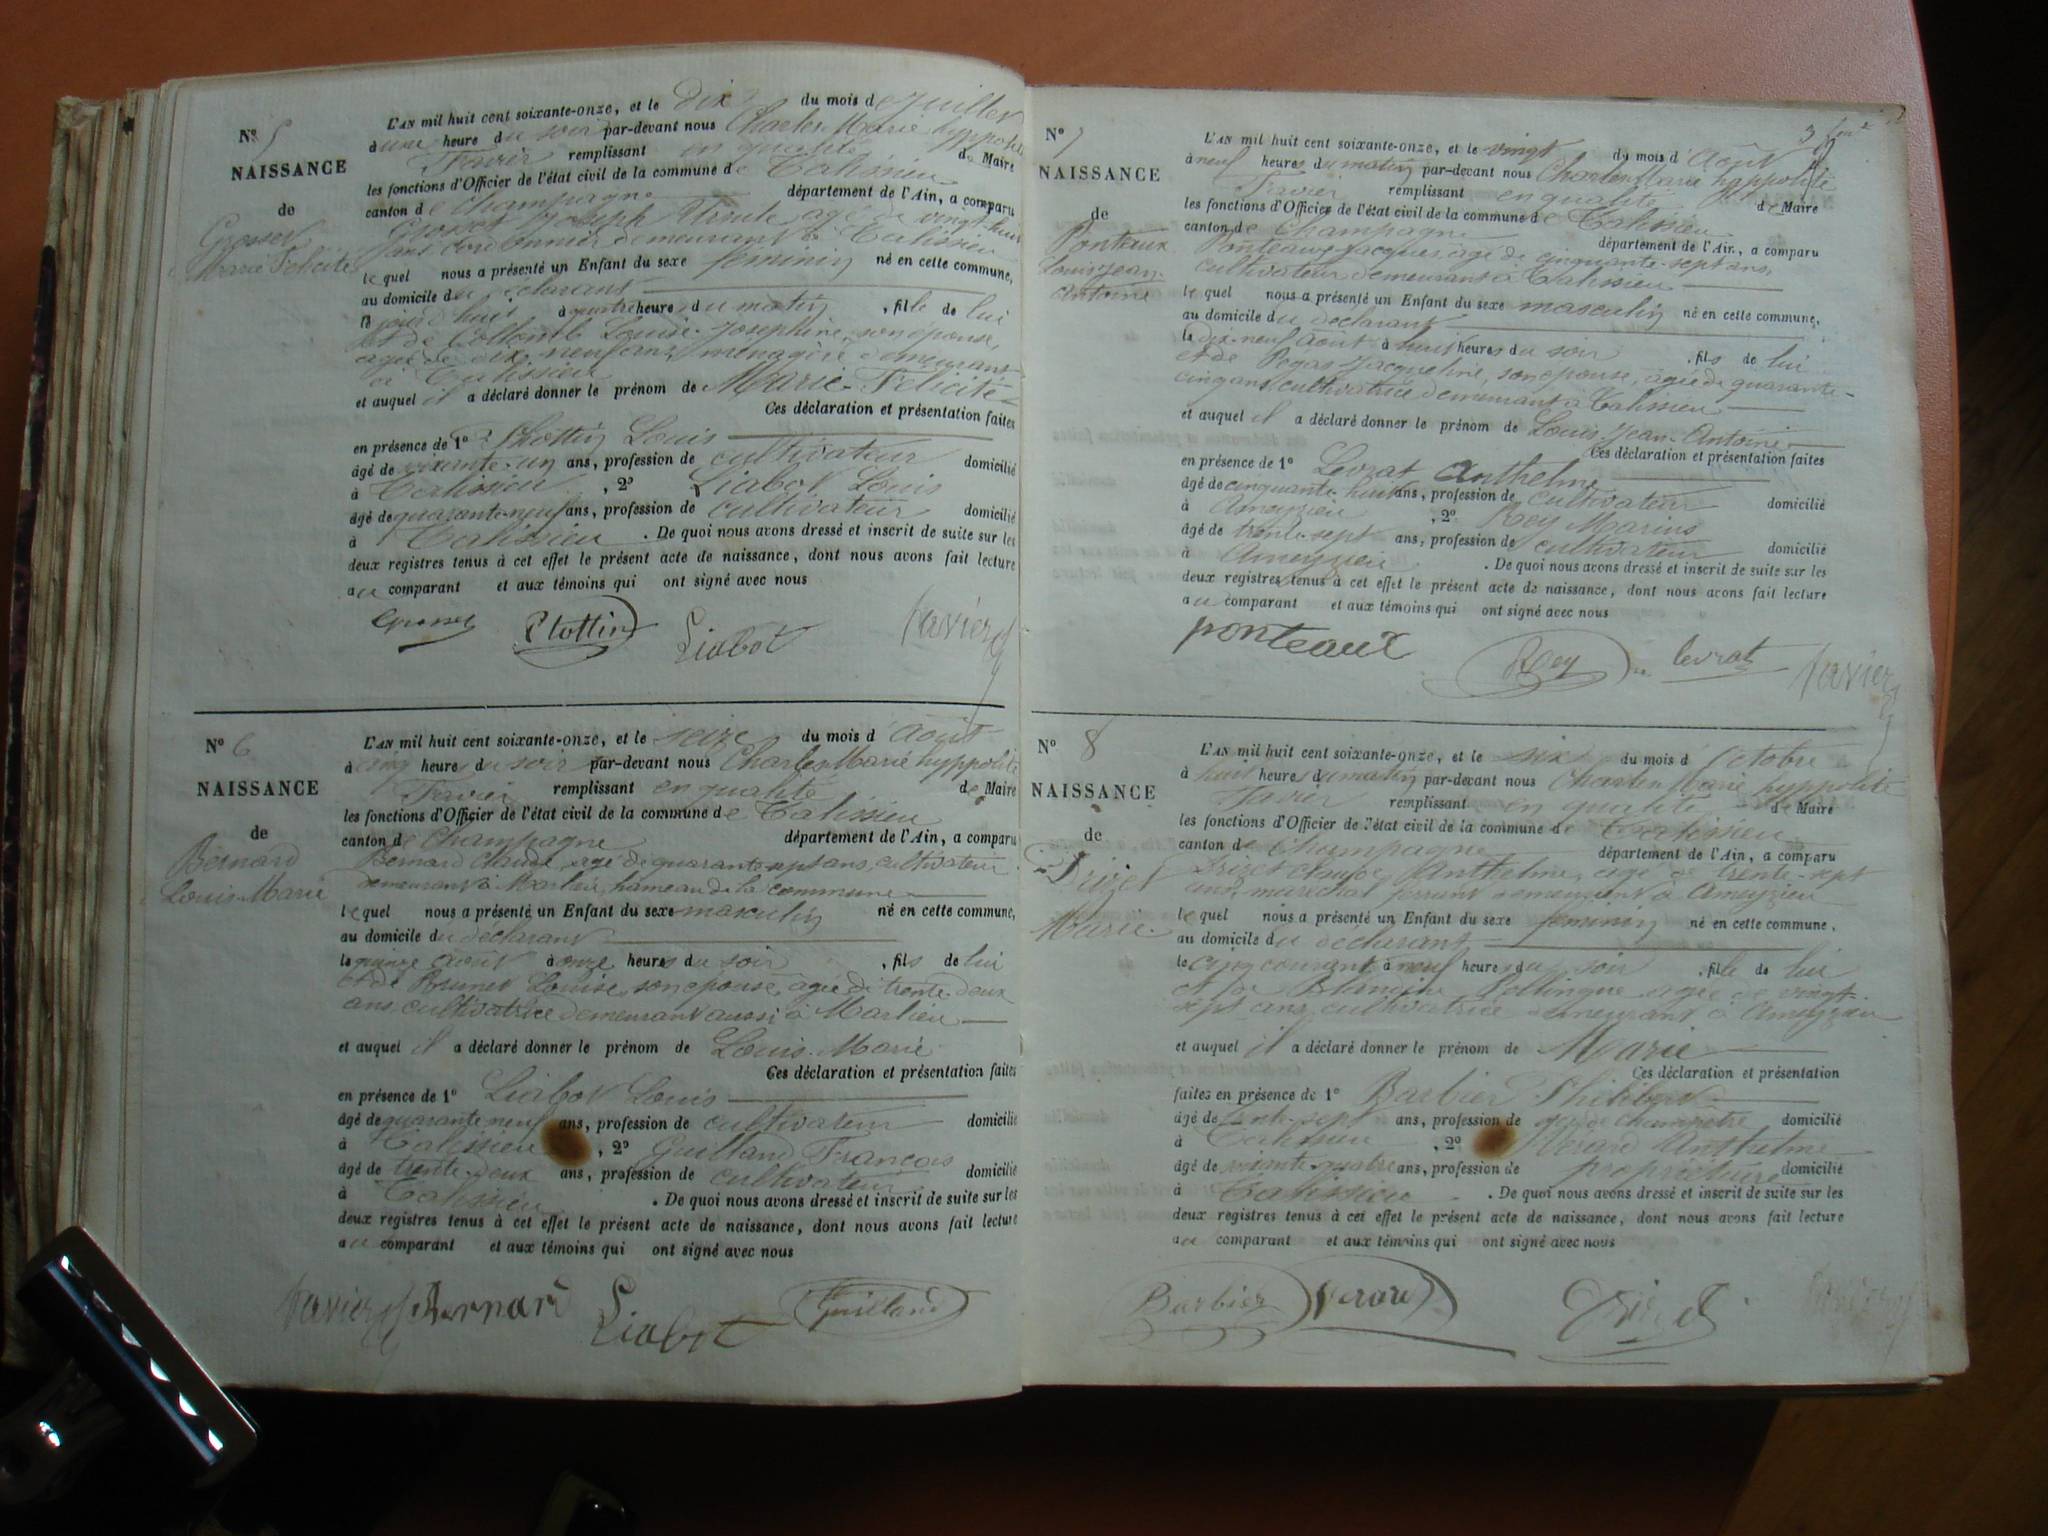 N° 5
NAISSANCE
de
Grosset
Marie Félicité
L'AN mil huit cent soixante-onze, et le dix du mois de Juillet
à une heure du soir par-devant nous Charles Marie hyppolite
Favier remplissant en qualité de Maire
les fonctions d'Officier de l'état civil de la commune de Talissieu
canton de Champagne département de l'Ain, a comparu
Joseph agé de vingt-huit
ans cordonnier demeurant à Talissieu
lequel nous a présenté un Enfant du sexe feminin né en cette commune,
au domicile du déclarant
le jourd'hui à quatre heure du matin, fille de lui
et de Collomb Louise Josephine, son épouse,
agée de dix neuf ans, ménagère demeurant
à Talissieu
et auquel il a déclaré donner le prénom de Marie-Felicité
Ces déclaration et présentation faites
en présence de 1° Plottin Louis
âgé de soixante-un ans, profession de cultivateur domicilié
à Talissieu, 2° Liabot Louis
âgé de quarante-neuf ans, profession de cultivateur domicilié
à Talissieu. De quoi nous avons dressé et inscrit de suite sur les
deux registres tenus à cet effet le présent acte de naissance, dont nous avons fait lecture
au comparant et aux témoins qui ont signé avec nous
Plottin Liabot Favier
N° 6
NAISSANCE
de
Bernard
Louis-Marie
L'AN mil huit cent soixante-onze, et le seize du mois d'Août
à cinq heures du soir par-devant nous Charles Marie hyppolite
Favier remplissant en qualité de Maire
les fonctions d'Officier de l'état civil de la commune de Talissieu
canton de Champagne département de l'Ain, a comparu
Bernard Claude, agé de quarante-sept ans, cultivateur
demeurant à Marlieu, hameau de la commune
lequel nous a présenté un Enfant du sexe masculin né en cette commune,
au domicile du déclarant
le quinze août à onze heures du soir, fils de lui
et de Brunet Louise, son épouse, agée de trente-deux
ans, cultivatrice demeurant aussi à Marlieu
et auquel il a déclaré donner le prénom de Louis-Marie
Ces déclaration et présentation faites
en présence de 1° Liabot Louis
âgé de quarante neuf ans, profession de cultivateur domicilié
à Talissieu, 2° Guilland François
âgé de trente-deux ans, profession de cultivateur domicilié
à Talissieu. De quoi nous avons dressé et inscrit de suite sur les
deux registres tenus à cet effet le présent acte de naissance, dont nous avons fait lecture
au comparant et aux témoins qui ont signé avec nous
Favier Bernard Liabot Guilland
N° 7
NAISSANCE
de
Ponteaux
Louis-Jean-
Antoine
L'AN mil huit cent soixante-onze, et le vingt du mois d'Août
à neuf heures du matin par-devant nous Charles Marie hyppolite
Favier remplissant en qualité de Maire
les fonctions d'Officier de l'état civil de la commune de Talissieu
canton de Champagne département de l'Ain, a comparu
Ponteaux Jacques, agé de cinquante-sept ans,
cultivateur demeurant à Talissieu
lequel nous a présenté un Enfant du sexe masculin né en cette commune,
au domicile du déclarant
le dix-neuf août à huit heures du soir, fils de lui
et de Jacqueline, son épouse, agée de quarante-
cinq ans, cultivatrice demeurant à Talissieu
et auquel il a déclaré donner le prénom de Louis-Jean-Antoine
Ces déclaration et présentation faites
en présence de 1° Levrat Anthelme
âgé de cinquante-huit ans, profession de cultivateur domicilié
à Ameyzieu, 2° Rey Marius
âgé de trente-sept ans, profession de cultivateur domicilié
à Ameyzieu. De quoi nous avons dressé et inscrit de suite sur les
deux registres tenus à cet effet le présent acte de naissance, dont nous avons fait lecture
au comparant et aux témoins qui ont signé avec nous
ponteaux Rey levrat Favier
N° 8
NAISSANCE
de
Drizet
Marie
L'AN mil huit cent soixante-onze, et le six du mois d'Octobre
à huit heures du matin par-devant nous Charles Marie hyppolite
Favier remplissant en qualité de Maire
les fonctions d'Officier de l'état civil de la commune de Talissieu
canton de Champagne département de l'Ain, a comparu
Drizet Claude Anthelme, agé de trente-sept
ans, maréchal ferrant demeurant à Ameyzieu
lequel nous a présenté un Enfant du sexe feminin né en cette commune,
au domicile du déclarant
le cinq courant à neuf heures du soir, fille de lui
et de Blandine agée de vingt-
sept ans, cultivatrice demeurant à Ameyzieu
et auquel il a déclaré donner le prénom de Marie
Ces déclaration et présentation
faites en présence de 1° Barbier Philibert
âgé de trente-sept ans, profession de garde champêtre domicilié
à Talissieu, 2° Anthelme
âgé de soixante-quatre ans, profession de propriétaire domicilié
à Talissieu. De quoi nous avons dressé et inscrit de suite sur les
deux registres tenus à cet effet le présent acte de naissance, dont nous avons fait lecture
au comparant et aux témoins qui ont signé avec nous
Barbier Drizet Favier